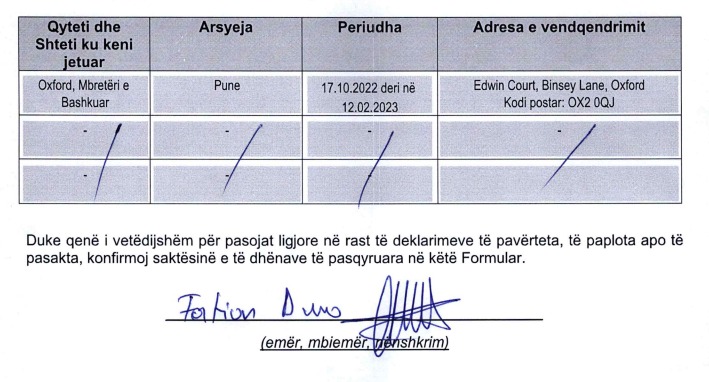 Qyteti dhe
Shteti ku keni
jetuar
Arsyeja
Periudha
Adresa e vendqendrimit
Oxford, Mbretëri e
Bashkuar
Pune
17.10.2022 deri në
12.02.2023
Edwin Court, Binsey Lane, Oxford
Kodi postar: OX2 0QJ
- - -
- - -
Duke qenë i vetëdijshëm për pasojat ligjore në rast të deklarimeve të pavërteta, të paplota apo të
pasakta, konfirmoj saktësinë e të dhënave të pasqyruara në këtë Formular.
(emër, mbiemër, nënshkrim)